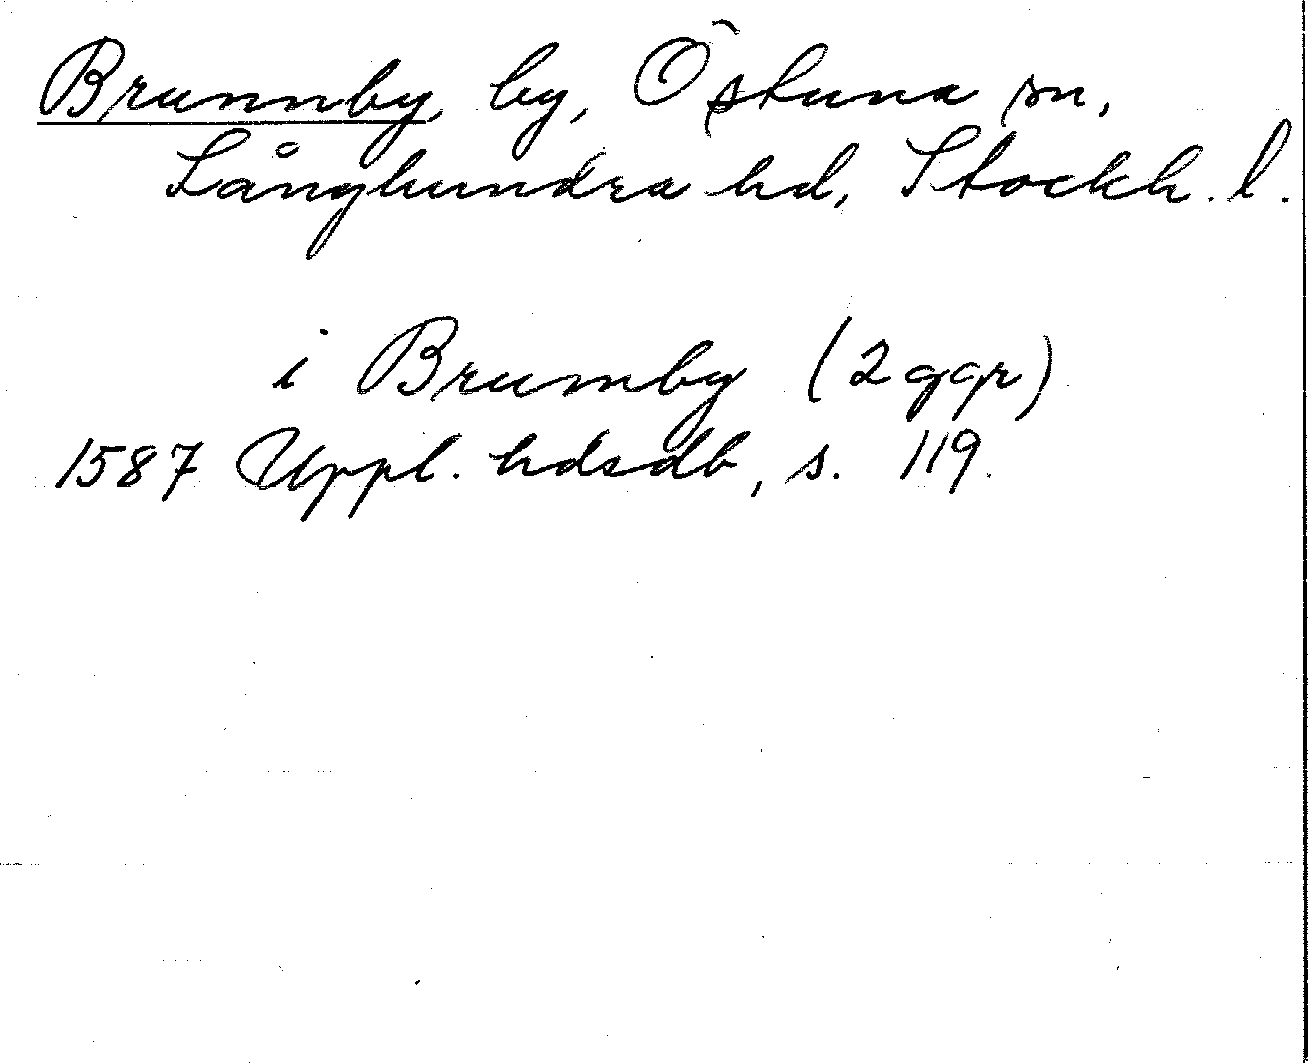 Brunnby, by, Östuna sn,
Långhundra hd, Stockh. l.
i Brumby (2 ggr)
1587 Uppl. hdsdb, s. 119.